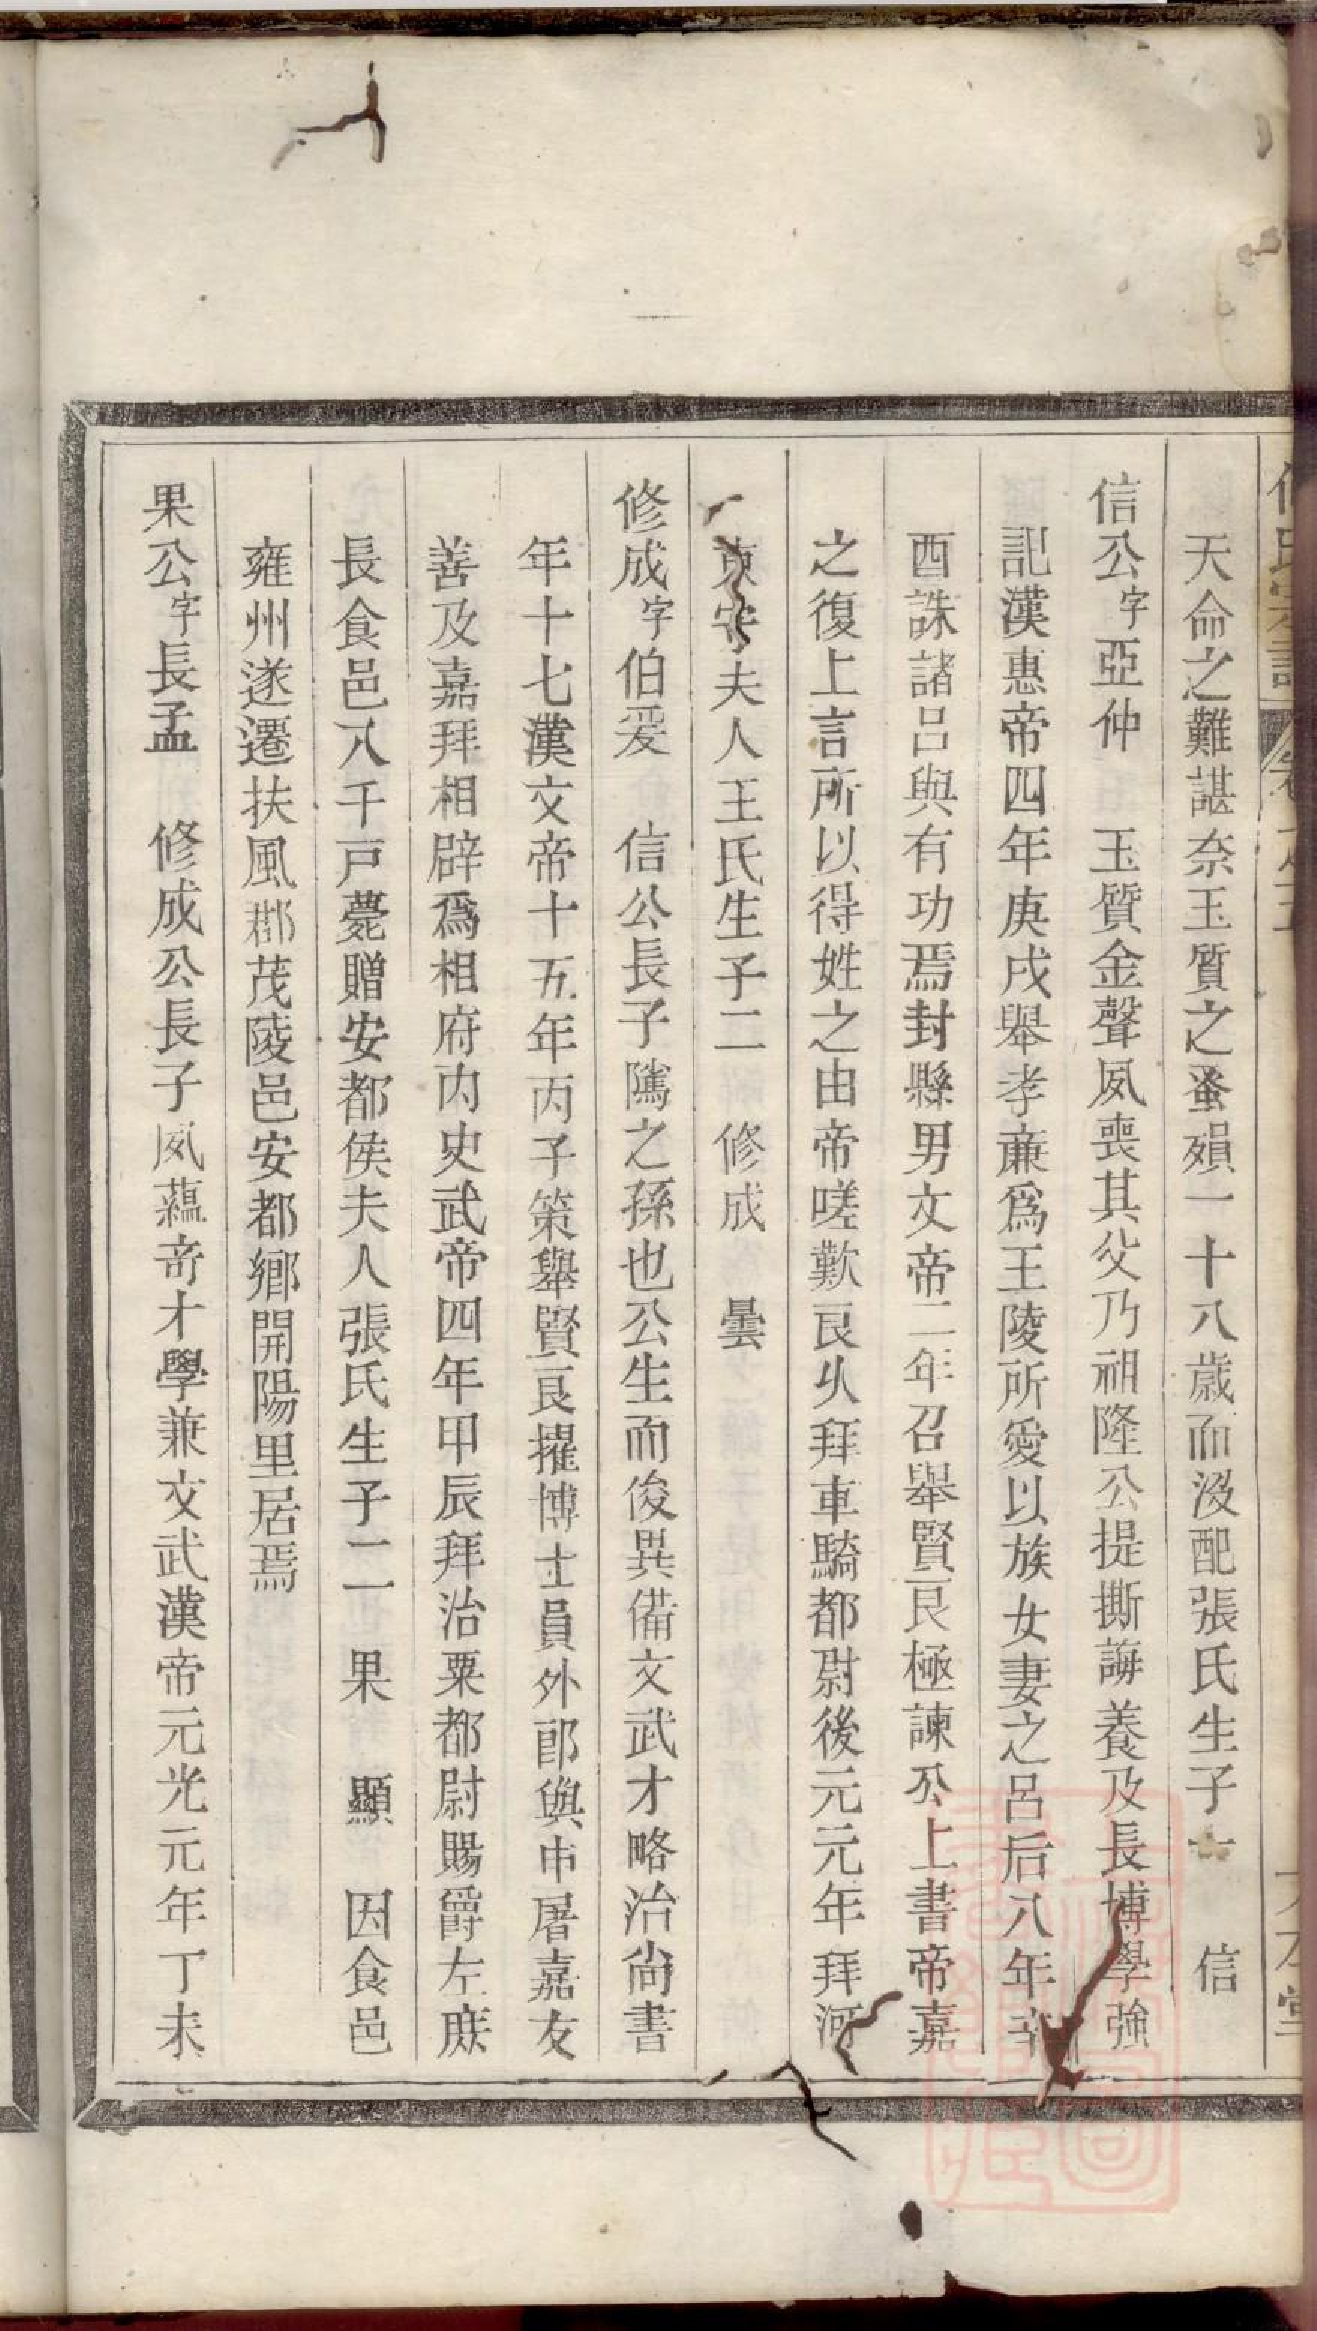 天命之難諶奈玉質之蚤殞一十八歲而沒配張氏生子一　信
信公字亞仲　玉質金聲夙喪其父乃祖隆公提撕誨養及長博學強
記漢惠帝四年庚戌舉孝廉爲王陵所愛以族女妻之呂后八年辛
酉誅諸呂與有功焉封縣男文帝二年召舉賢良極諫公上書帝嘉
之復上言所以得姓之由帝嗟歎良久拜車騎都尉後元元年拜河
東守夫人王氏生子二　修成　曇
修成字伯爰　信公長子隲之孫也公生而俊異備文武才略治尚書
年十七漢文帝十五年丙子策舉賢良擢博士員外郎與申屠嘉友
善及嘉拜相辟爲相府內史武帝四年甲辰拜治粟都尉賜爵左庶
長食邑八千戸薨贈安都侯夫人張氏生子二　果　顯　因食邑
雍州遂遷扶風郡茂陵邑安都鄉開陽里居焉
果公字長孟　修成公長子夙蘊奇才學兼文武漢帝元光元年丁未